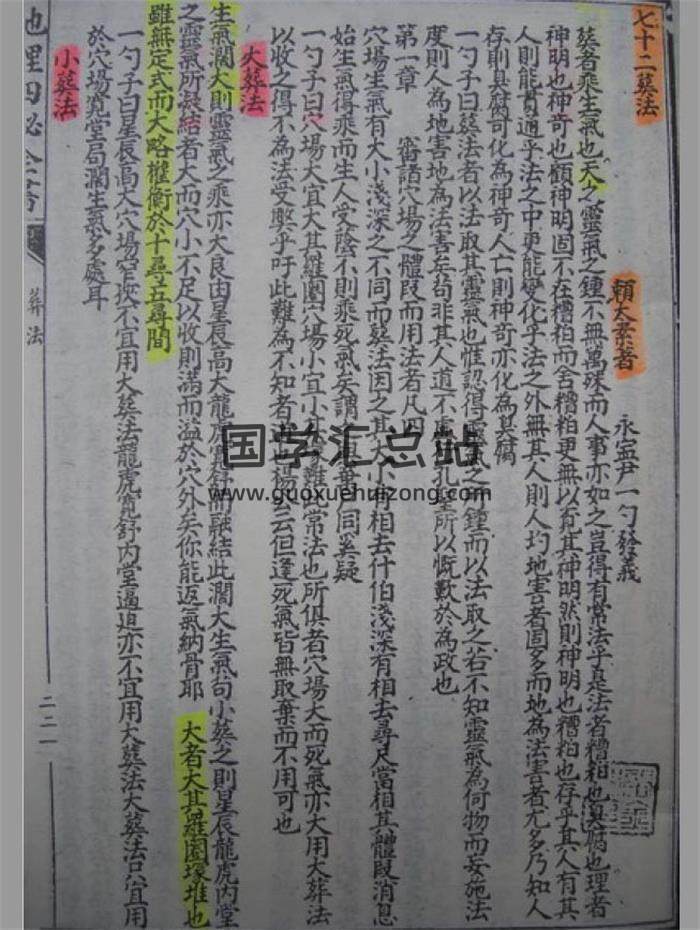 七十二葬法
賴太素著
永寧尹一勺發義
葬者乘生氣也天之靈氣之鍾不無萬殊而人事亦如之豈得有常法乎是法者糟粕也臭腐也理者
神明也神奇也顧神明固不在糟粕而舍糟粕更無以見其神明然則神明也糟粕也存乎其人有其
人則能貫通乎法之中更能變化乎法之外無其人則人圴地害者固多而地為法害者尤多乃知人
存則臭腐可化為神奇人亡則神奇亦化為臭腐
一勺子曰葬法者以法取其靈氣也惟認得靈氣之鍾而以法取之若不知靈氣為何物而妄施法
度則人為地害地為法害矣苟非其人道不虛 孔聖所以慨歎於為政也
第一章 審諸穴場之體段而用法者凡四
穴場生氣有大小淺深之不同而葬法因之其大小有相去什伯淺深有相去尋尺當相其體段消息
始生氣得乘而生人受蔭不則乘死氣矣謂之與棄尸同奚疑
一勺子曰穴場大宜大其羅圍穴場小宜小其 此常法也所俱者穴場大而死氣亦大用大葬法
以收之得不為法受斃乎吁此難為不知者道也楊公云但逢死氣皆無取棄而不用可也
大葬法
生氣濶大則靈氣之乘亦大良由星辰高大龍虎寬舒開融結此濶大生氣句小葬之則星辰龍虎內堂
之靈氣所凝結者大而穴小不足以收則滿而溢於穴外矣你能返氣納骨耶 大者大其羅圍塚堆也
雖無定式而大略權衡於十尋五尋間
一勺子曰星辰高大穴場窄狹不宜用大葬法龍虎寬舒內堂逼迫亦不宜用大葬法大葬法只宜用
於穴場寬堂局濶生氣多處耳
小葬法
地理四秘全書
葬法
二二一
国学汇总站
www.guoxuehuizong.com